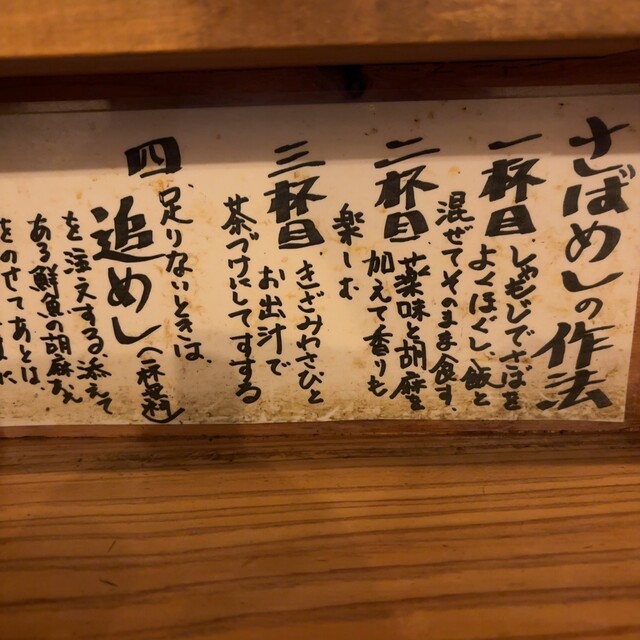 さばめしの作法
一杯目
しゃもじでさばを
よくほぐし、飯と
混ぜてそのまま食す。
二杯目
薬味と胡麻を
加えて香りも
楽しむ
三杯目
きざみわさびと
お出汁で
茶づけにしてすする
四
足りないときは、
追めし(一杯無料)
を注文する。添えて
ある鮮魚の胡麻和え
をのせてあとは